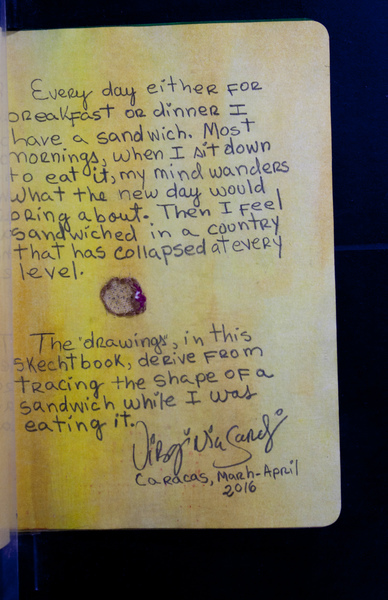 Every day either for
breakfast or dinner I
have a sandwich. Most
mornings, when I sit down
to eat it, my mind wanders
what the new day would
bring about. Then I feel
sandwiched in a country
that has collapsed at every
level.
The drawings, in this
skechtbook, derive from
tracing the shape of a
sandwich while I was
eating it.
Caracas, Marh-April
2016